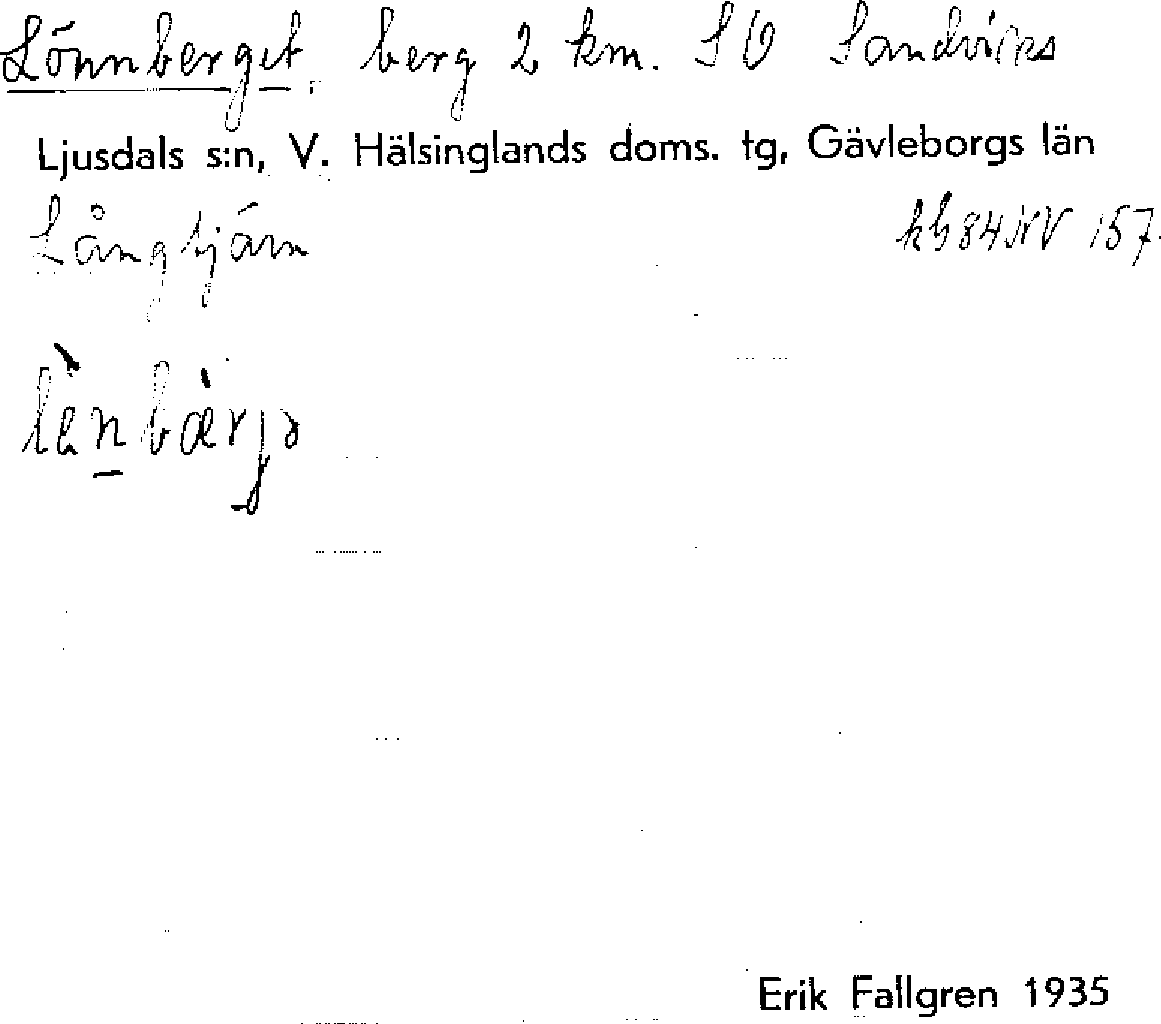 Lönnberget. berg 2 km. SO Sandviks
Ljusdals s:n, V. Hälsinglands doms. tg, Gävleborgs län
Långtjärn kb 84 NV 157.
Erik Fallgren 1935